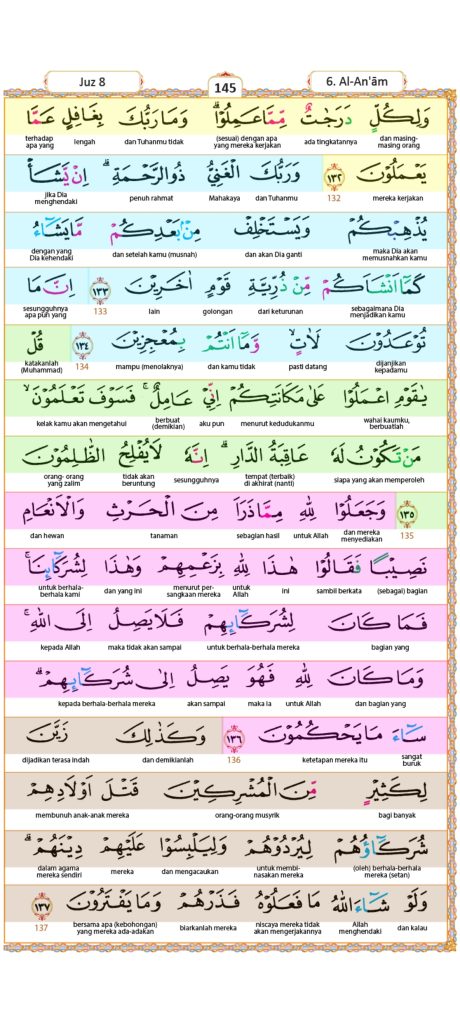 Juz 8
145
6. Al-An'ām
وَلِكُلٍّ دَرَجٰتٌ مِّمَّا عَمِلُوْاۗ وَمَا رَبُّكَ بِغَافِلٍ عَمَّا
dan masing-masing orang ada tingkatannya (sesuai) dengan apa yang mereka kerjakan dan Tuhanmu tidak lengah terhadap apa yang
يَعْمَلُوْنَ ١٣٢ وَرَبُّكَ الْغَنِيُّ ذُو الرَّحْمَةِۗ اِنْ يَّشَأْ
mereka kerjakan 132 dan Tuhanmu Mahakaya penuh rahmat jika Dia menghendaki
يُذْهِبْكُمْ وَيَسْتَخْلِفْ مِنْۢ بَعْدِكُمْ مَّا يَشَاۤءُ
maka Dia akan memusnahkan kamu dan akan Dia ganti dan setelah kamu (musnah) dengan yang Dia kehendaki
كَمَآ اَنْشَاَكُمْ مِّنْ ذُرِّيَّةِ قَوْمٍ اٰخَرِيْنَ ١٣٣ اِنَّ مَا
sebagaimana Dia menjadikan kamu dari keturunan golongan lain 133 sesungguhnya apa pun yang
تُوْعَدُوْنَ لَاٰتٍۙ وَّمَآ اَنْتُمْ بِمُعْجِزِيْنَ ١٣٤ قُلْ
dijanjikan kepadamu pasti datang dan kamu tidak mampu (menolaknya) 134 katakanlah (Muhammad)
يٰقَوْمِ اعْمَلُوْا عَلٰى مَكَانَتِكُمْ اِنِّيْ عَامِلٌۚ فَسَوْفَ تَعْلَمُوْنَۙ
wahai kaumku, berbuatlah menurut kedudukanmu aku pun berbuat (demikian) kelak kamu akan mengetahui
مَنْ تَكُوْنُ لَهٗ عَاقِبَةُ الدَّارِۗ اِنَّهٗ لَا يُفْلِحُ الظّٰلِمُوْنَ
siapa yang akan memperoleh tempat (terbaik) di akhirat (nanti) sesungguhnya tidak akan beruntung orang- orang yang zalim
١٣٥ وَجَعَلُوْا لِلّٰهِ مِمَّا ذَرَاَ مِنَ الْحَرْثِ وَالْاَنْعَامِ
135 dan mereka menyediakan untuk Allah sebagian hasil tanaman dan hewan
نَصِيْبًا فَقَالُوْا هٰذَا لِلّٰهِ بِزَعْمِهِمْ وَهٰذَا لِشُرَكَاۤىِٕنَاۚ
(sebagai) bagian sambil berkata ini untuk Allah menurut per-sangkaan mereka dan yang ini untuk berhala-berhala kami
فَمَا كَانَ لِشُرَكَاۤىِٕهِمْ فَلَا يَصِلُ اِلَى اللّٰهِۚ
bagian yang untuk berhala-berhala mereka maka tidak akan sampai kepada Allah
وَمَا كَانَ لِلّٰهِ فَهُوَ يَصِلُ اِلٰى شُرَكَاۤىِٕهِمْۗ
dan bagian yang untuk Allah maka Ia akan sampai kepada berhala-berhala mereka
سَاۤءَ مَا يَحْكُمُوْنَ ١٣٦ وَكَذٰلِكَ زَيَّنَ
sangat buruk ketetapan mereka itu 136 dan demikianlah dijadikan terasa indah
لِكَثِيْرٍ مِّنَ الْمُشْرِكِيْنَ قَتْلَ اَوْلَادِهِمْ
bagi banyak orang-orang musyrik membunuh anak-anak mereka
شُرَكَاۤؤُهُمْ لِيُرْدُوْهُمْ وَلِيَلْبِسُوْا عَلَيْهِمْ دِيْنَهُمْۗ
(oleh) berhala-berhala mereka (setan) untuk membi-nasakan mereka dan mengacaukan mereka dalam agama mereka sendiri
وَلَوْ شَاۤءَ اللّٰهُ مَا فَعَلُوْهُ فَذَرْهُمْ وَمَا يَفْتَرُوْنَ ١٣٧
dan kalau Allah menghendaki niscaya mereka tidak akan mengerjakannya biarkanlah mereka bersama apa (kebohongan) yang mereka ada-adakan 137